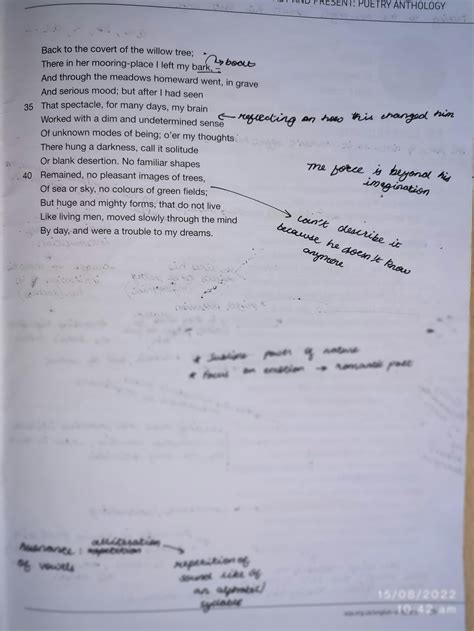 PRESENT: POETRY ANTHOLOGY
Back to the covert of the willow tree;
There in her mooring-place I left my bark, –
boat
And through the meadows homeward went, in grave
And serious mood; but after I had seen
35 That spectacle, for many days, my brain
Worked with a dim and undetermined sense
reflecting on how this changed him
Of unknown modes of being; o'er my thoughts
There hung a darkness, call it solitude
Or blank desertion. No familiar shapes
the force is beyond his
imagination
40 Remained, no pleasant images of trees,
Of sea or sky, no colours of green fields;
But huge and mighty forms, that do not live
Like living men, moved slowly through the mind
By day, and were a trouble to my dreams.
can't describe it
because he doesn't know
anymore
* Sublime power of nature
* Focus on emotion → romantic poet
alliteration
Assonance: repetition
of vowels
repetition of
sound like of
an alphabet/
syllable
15/08/2022
10:42 am